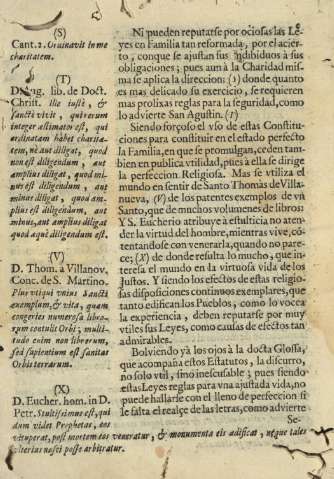 (S)
Cant. 2. Ordinavit in me
charitatem.
(T)
D. Aug. lib. de Doct.
Christ. Ille iustè, &
sanctè vivit, qui rerum
integer æstimator est, qui
ordinatam habet charita-
tem, ne aut diligat, quod
non est diligendum, aut
amplius diligat, quod mi-
nus est diligendum, aut
minus diligat, quod am-
plius est diligendum, aut
minus, aut amplius diligat
quod æquè diligendum est.
(V)
D. Thom. à Villanov.
Conc. de S. Martino.
Plus utiqui vnius Sancti
exemplum, & vita, quam
congeries numerosa libro-
rum contulit Orbi; multi-
tudo enim non librorum,
sed sapientium est sanitas
Orbis terrarum.
(X)
D. Eucher. hom. in D.
Petr. Stultissimus est, qui
dum videt Prophetas, eos
vituperat, post mortem eos veneratur, & monumenta eis ædificat, neque tales
alterius nasci posse arbitratur.
Ni pueden reputarse por ociosas las Le-
yes en Familia tan reformada, por el acier-
to, con que se ajustan sus individuos à sus
obligaciones; pues aun à la Charidad mis-
ma se aplica la direccion: (S) donde quanto
es mas delicado su exercicio, se requieren
mas prolixas reglas para su seguridad, como
lo advierte San Agustin. (T)
Siendo forçoso el vso de estas Constitu-
ciones para constituir en el estado perfecto
la Familia, en que se promulgan, ceden tam-
bien en publica vtilidad, pues à ella se dirige
la perfeccion Religiosa. Mas se utiliza el
mundo en sentir de Santo Thomas de Villa-
nueva, (V) de los patentes exemplos de vn
Santo, que de muchos volumenes de libros:
Y S. Eucherio atribuye à estulticia no aten-
der la virtud del hombre, mientras vive, có-
tentandose con venerarla, quando no pare-
ce; (X) de donde resulta lo mucho, que in-
teresa el mundo en la virtuosa vida de los
Justos. Y siendo los efectos de estas religio-
sas disposiciones continuos exemplares, que
tanto edifican los Pueblos, como lo vocea
la experiencia, deben reputarse por muy
vtiles sus Leyes, como causas de efectos tan
admirables.
Bolviendo yà los ojos à la docta Glossa,
que acompaña estos Estatutos, la discurro,
no solo vtil, sino inescusable; pues siendo
estas Leyes reglas para vna ajustada vida, no
puede hallarse con el lleno de perfeccion si
le falta el realçe de las letras, como advierte
Se-